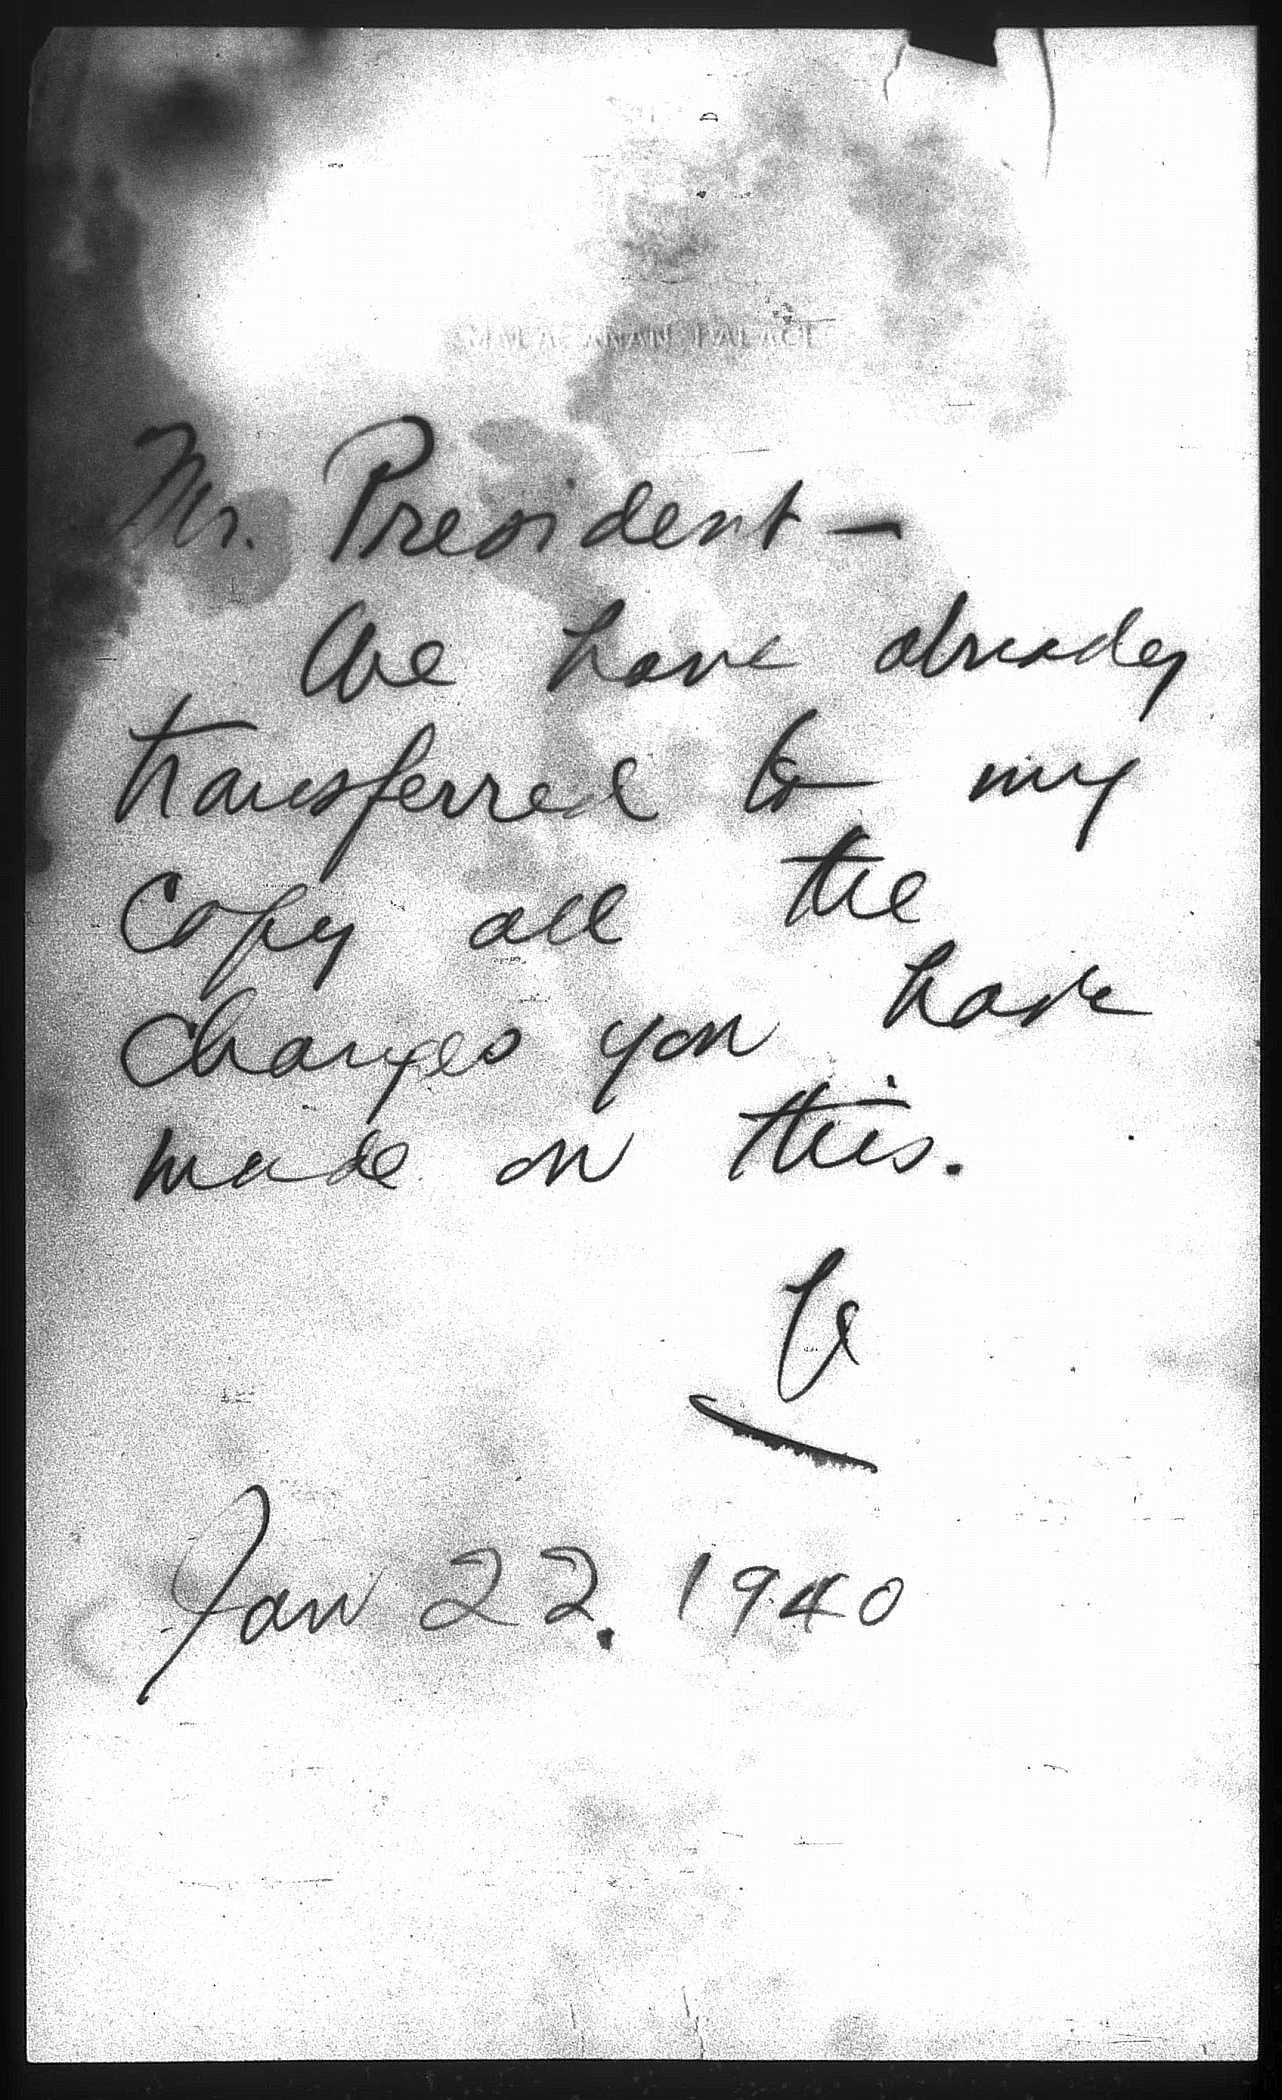 MALACAÑAN PALACE
Mr. President —
We have already
transferred to my
copy all the
changes you have
made on this.
Jan 22. 1940